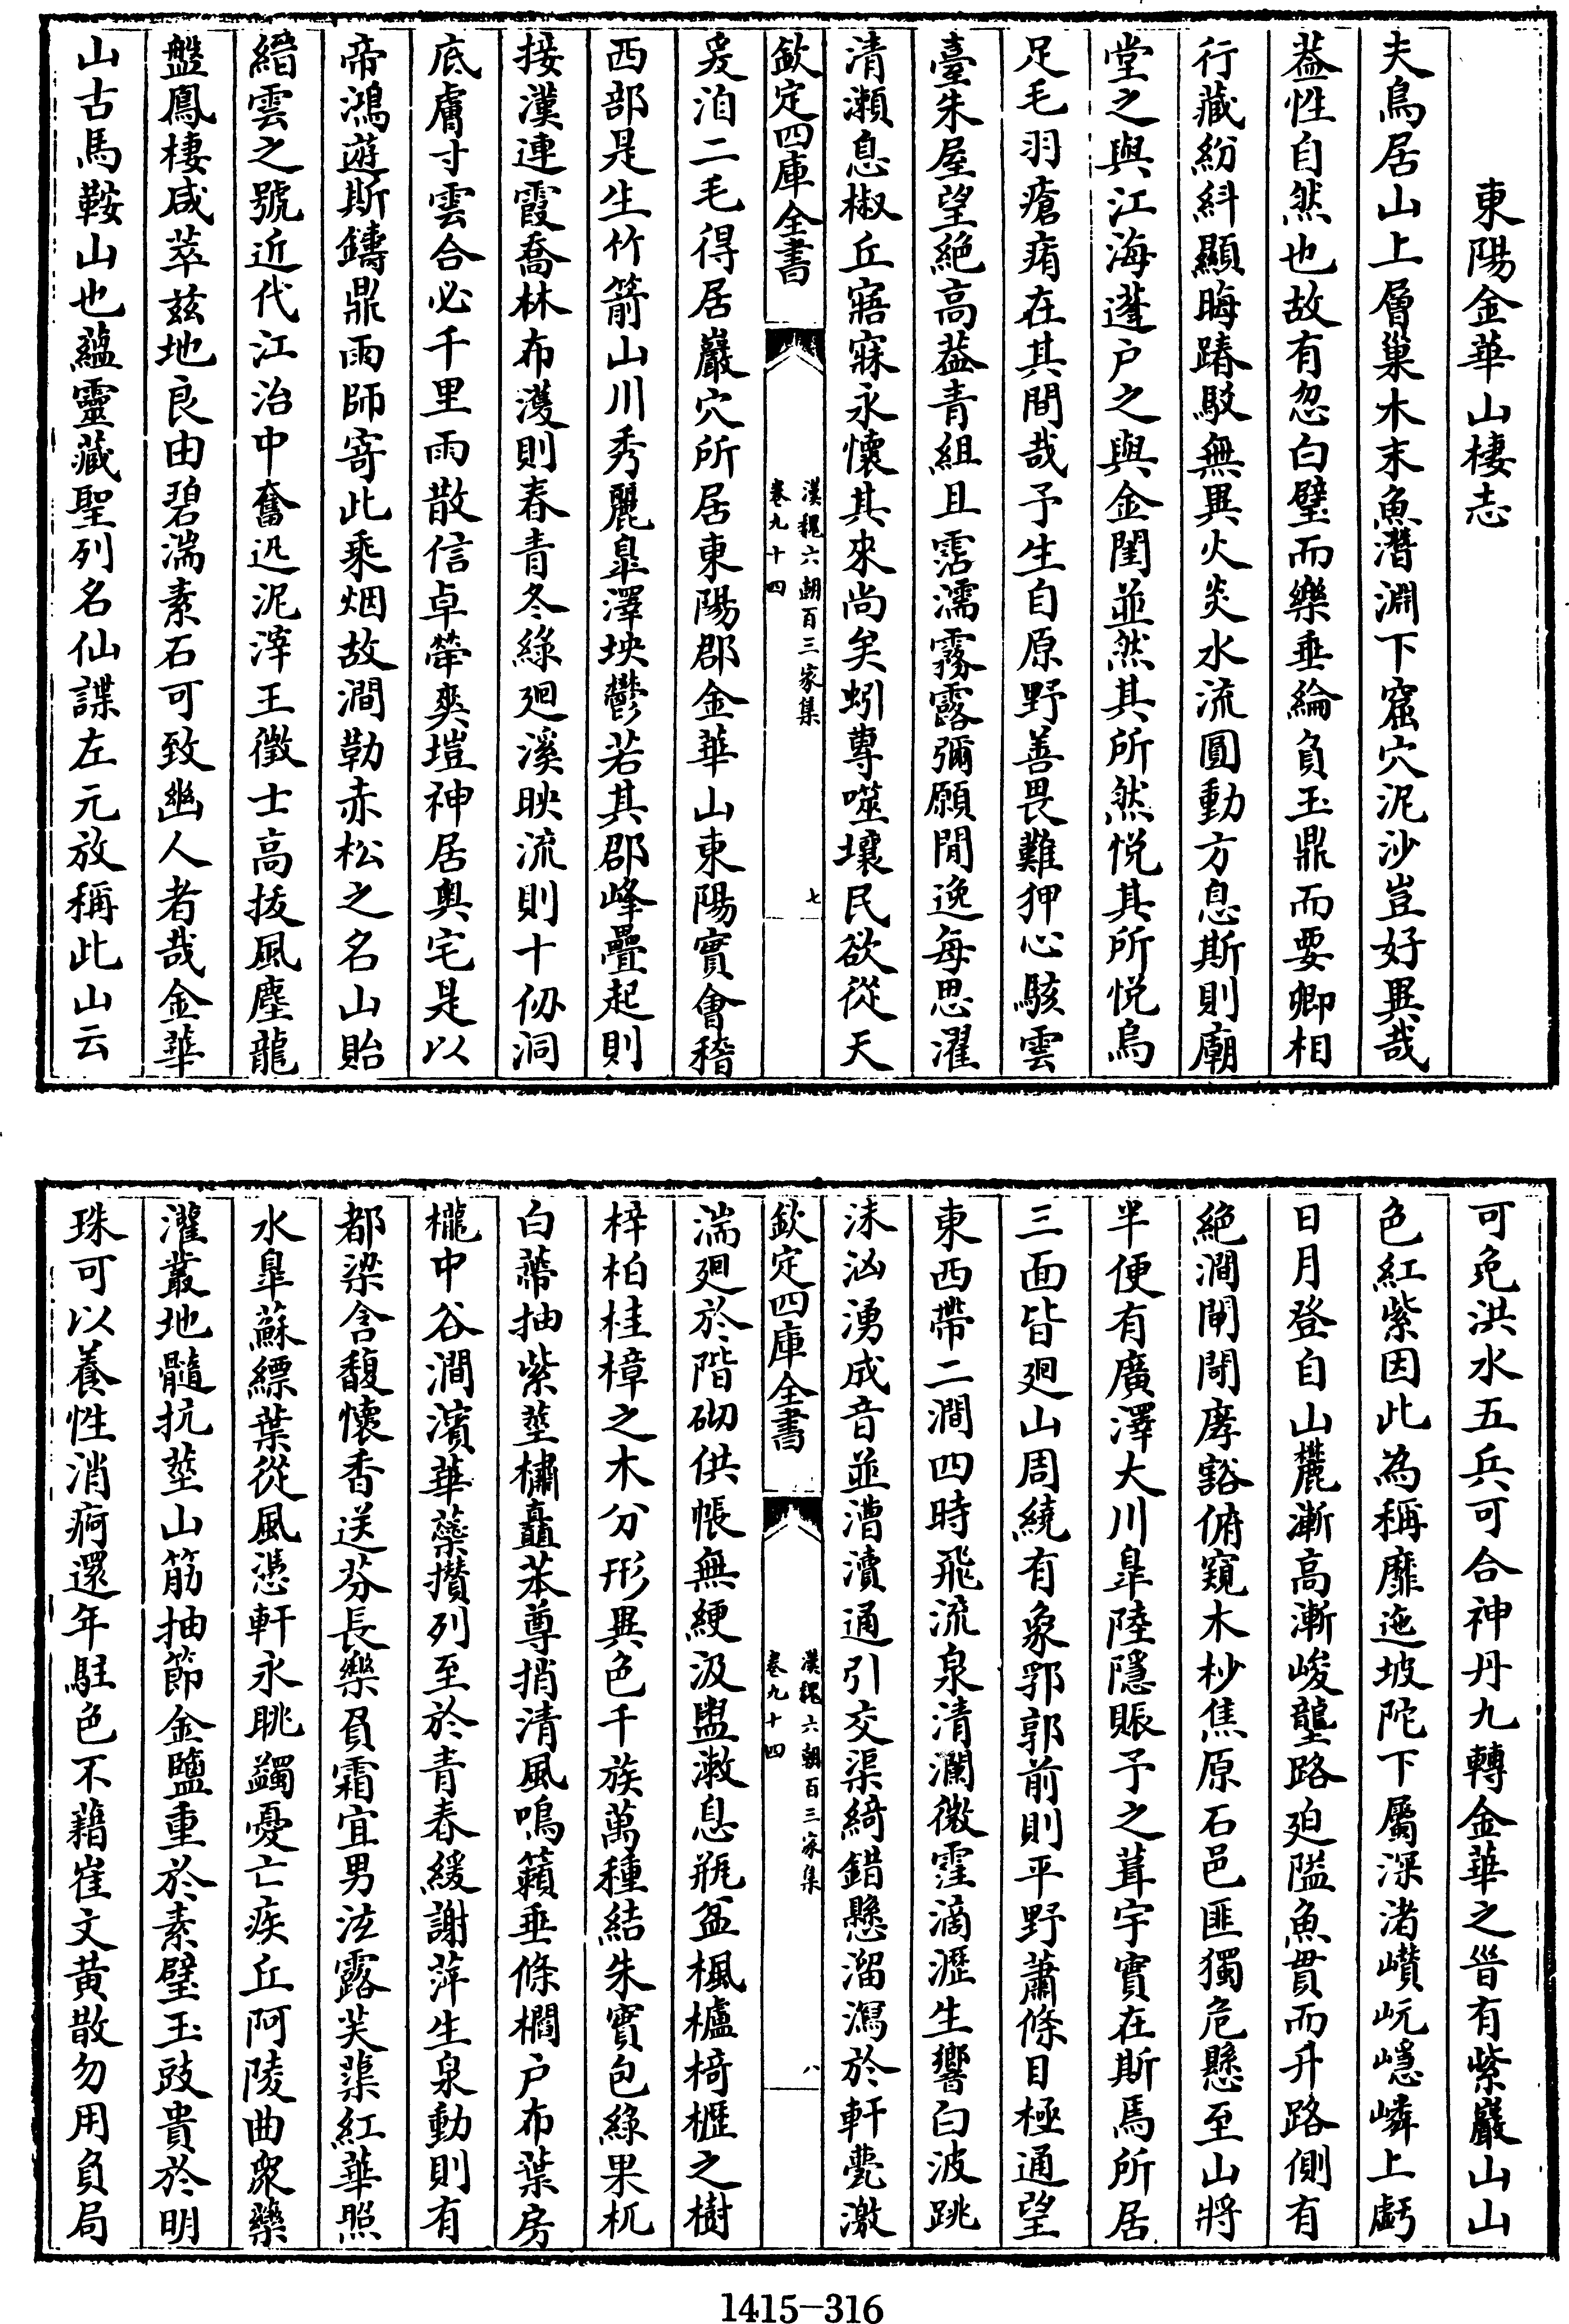 東陽金華山棲志
夫鳥居山上層巢木末魚潛淵下窟穴泥沙豈好異哉
葢性自然也故有忽白璧而樂垂綸負玉鼎而要卿相
行藏紛糾顯晦踳駁無異火炎水流圓動方息斯則廟
堂之與江海蓬户之與金閨並然其所然悅其所悅烏
足毛羽瘡痏在其間哉予生自原野善畏難狎心駭雲
臺朱屋望絶高葢青組且霑濡霧露彌願閒逸每思濯
清瀬息椒丘寤寐永懷其來尚矣蚓專噬壤民欲從天
欽定四庫全書
漢魏六朝百三家集
卷九十四
七
爰洎二毛得居巖穴所居東陽郡金華山東陽實會稽
西部是生竹箭山川秀麗臯澤坱鬱若其郡峰疊起則
接漢連霞喬林布濩則春青冬綠廻溪映流則十仞洞
底膚寸雲合必千里雨散信卓犖爽塏神居奧宅是以
帝鴻遊斯鑄鼎雨師寄此乘烟故澗勒赤松之名山貽
縉雲之號近代江治中奮迅泥滓王徵士高拔風塵龍
盤鳳棲咸萃兹地良由碧湍素石可致幽人者哉金華
山古馬鞍山也蘊靈藏聖列名仙諜左元放稱此山云
可免洪水五兵可合神丹九轉金華之首有紫巖山山
色紅紫因此為稱靡迤坡陀下屬深渚巑岏嶾嶙上虧
日月登自山麓漸高漸峻壟路廹隘魚貫而升路側有
絶澗閘閜庨豁俯窺木杪焦原石邑匪獨危懸至山將
半便有廣澤大川臯陸隱賑予之葺宇實在斯焉所居
三面皆廻山周繞有象郛郭前則平野蕭條目極通望
東西帶二澗四時飛流泉清瀾微霔滴瀝生響白波跳
沫洶湧成音並漕瀆通引交渠綺錯懸溜瀉於軒甍激
欽定四庫全書
漢魏六朝百三家集
卷九十四
八
湍廻於階砌供帳無綆汲盥漱息瓶盆楓櫨椅櫪之樹
梓柏桂樟之木分形異色千族萬種結朱實包綠果杌
白蔕抽紫莖橚矗苯尊捎清風鳴籟垂條櫩户布葉房
櫳中谷澗濱華蘂攢列至於青春緩謝萍生泉動則有
都梁含馥懷香送芬長樂負霜宜男泫露芙蕖紅華照
水臯蘇縹葉從風憑軒永眺蠲憂亡疾丘阿陵曲衆藥
灌叢地髓抗莖山筋抽節金鹽重於素璧玉豉貴於明
珠可以養性消痾還年駐色不藉崔文黃散勿用負局
1415-316